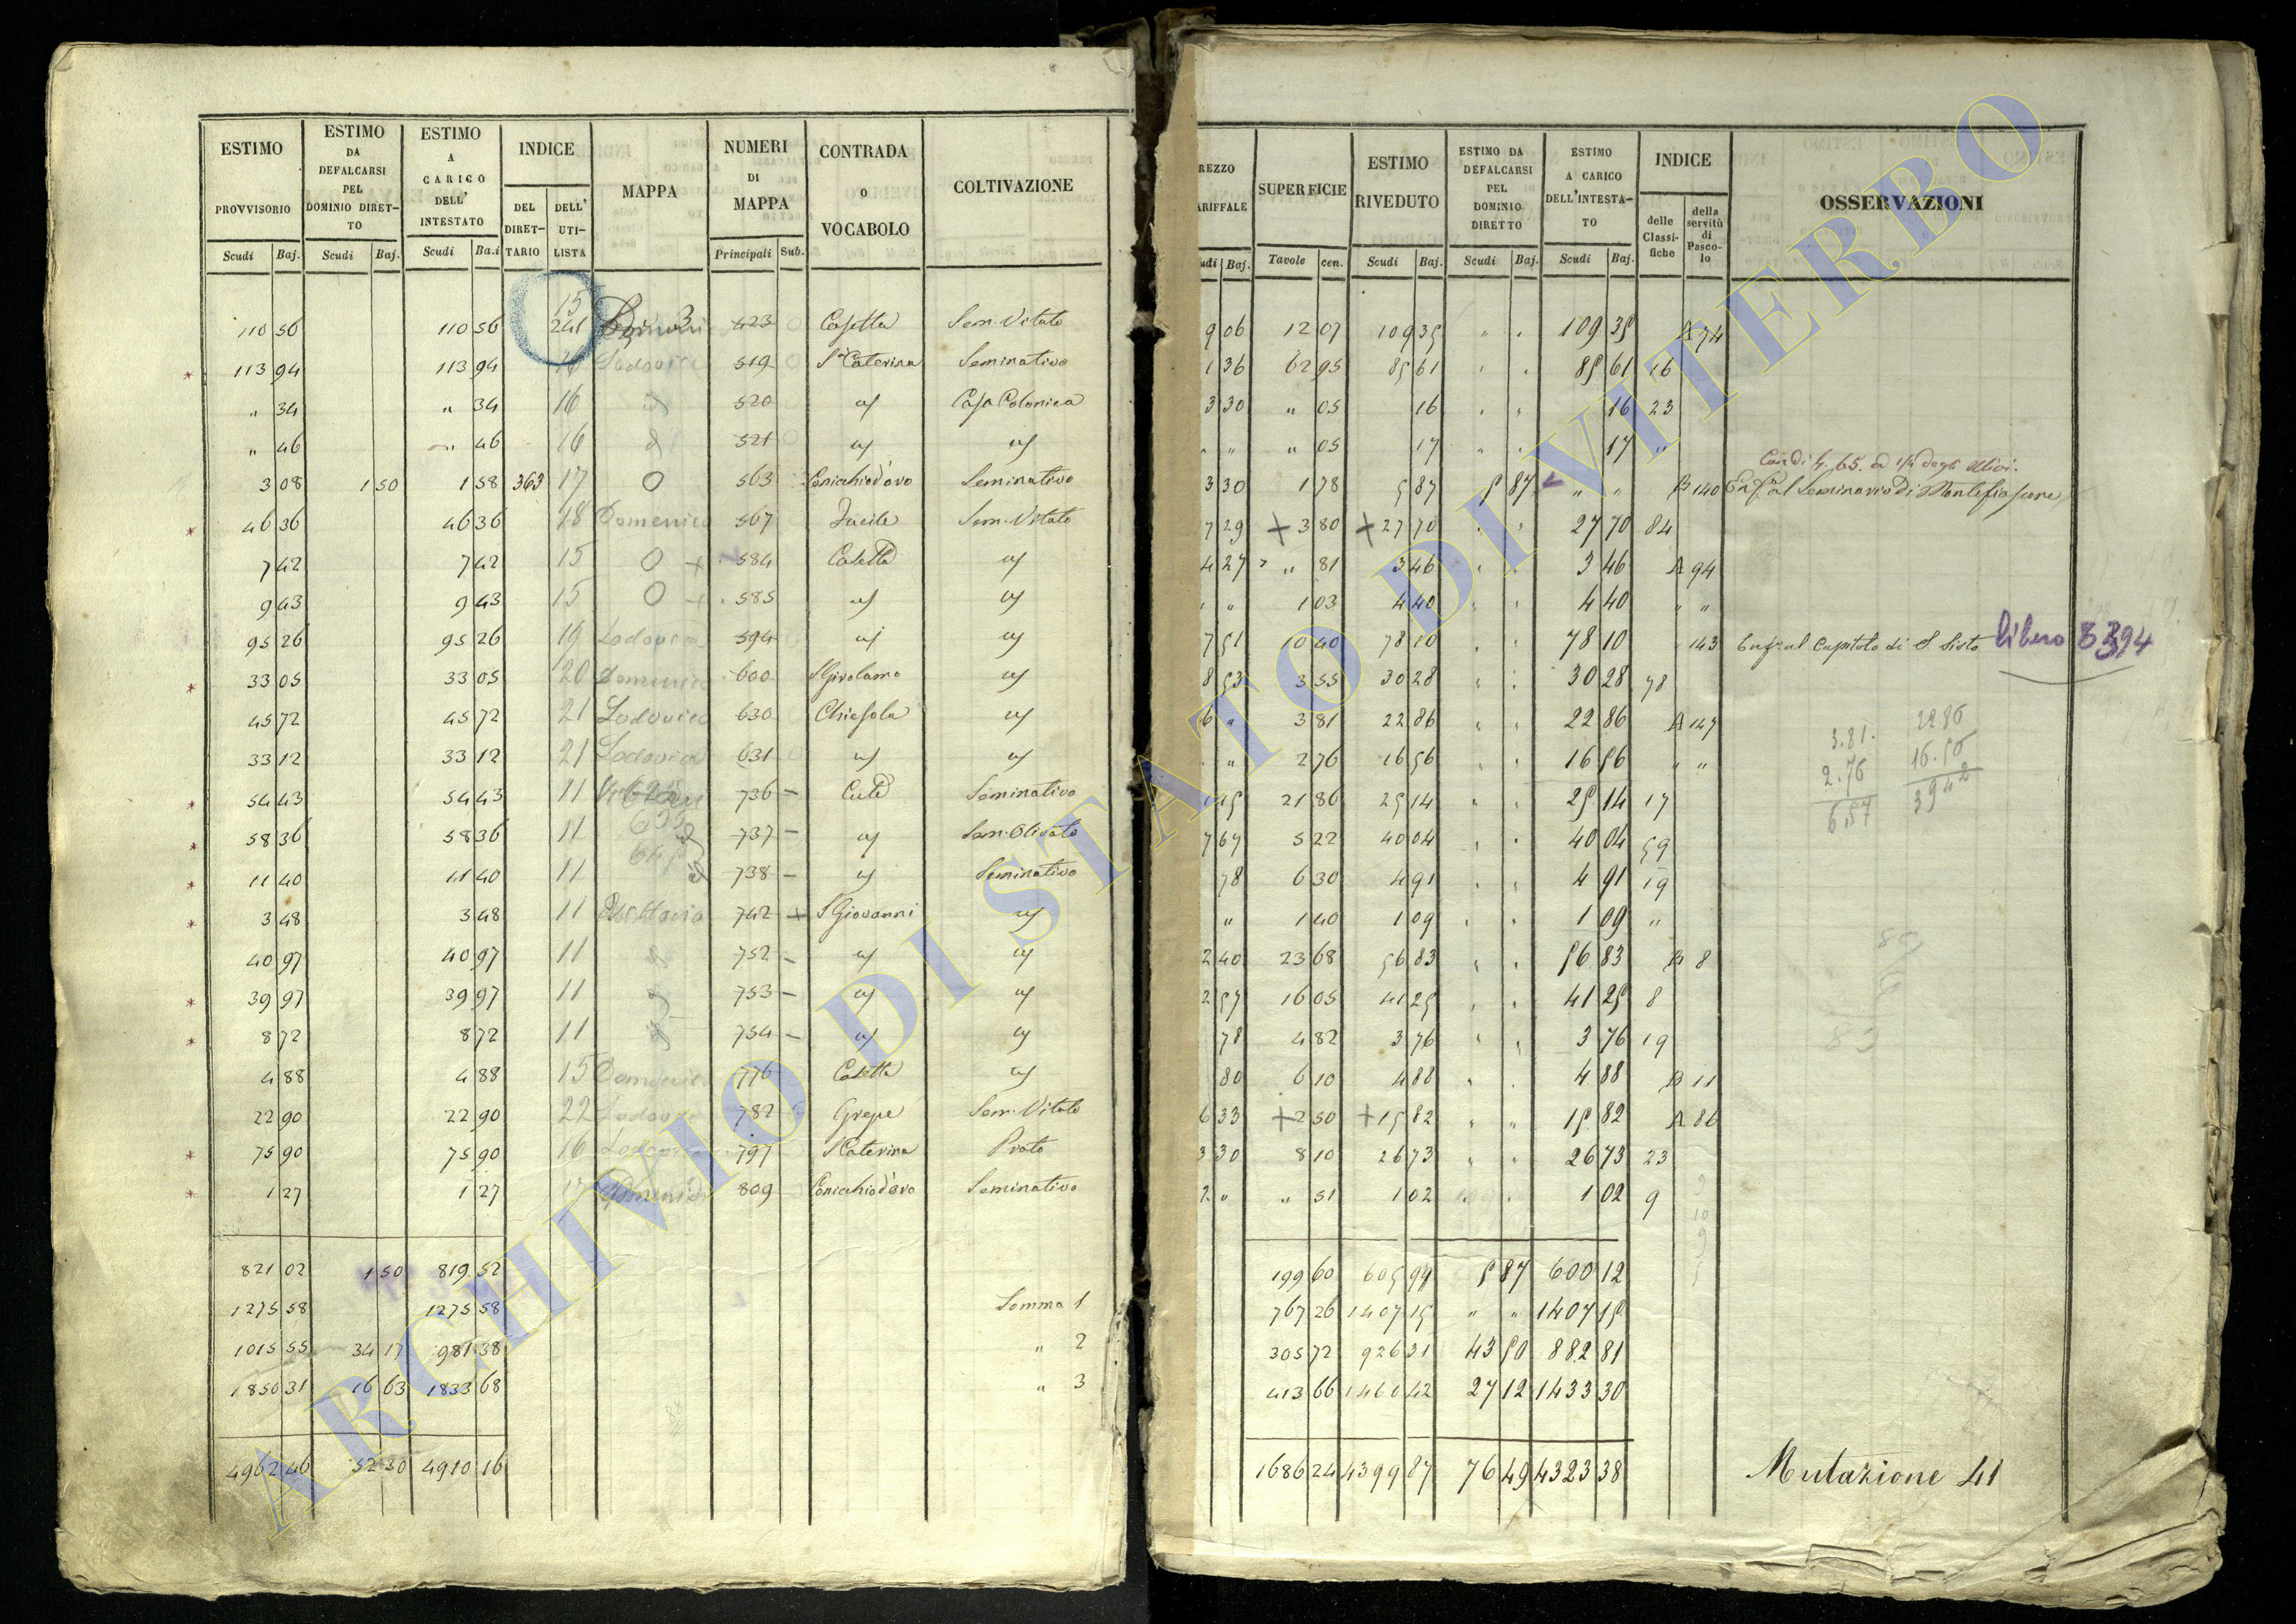 ESTIMO PROVVISORIO Scudi Baj. | ESTIMO DA DEFALCARSI PEL DOMINIO DIRET-TO Scudi Baj. | ESTIMO A CARICO DELL' INTESTATO Scudi Ba.i | INDICE DEL DIRET-TARIO DELL' UTI-LISTA | MAPPA | NUMERI DI MAPPA Principali Sub. | CONTRADA o VOCABOLO | COLTIVAZIONE
15
110 56 110 56 241 3 423 Casetta Sem. Vitato
* 113 94 113 94 16 Lodovica 519 S. Caterina Seminativo
" 34 " 34 16 520 Casa Colonica
" 46 " 46 16 521
3 08 1 50 1 58 363 17 O 563 Seminativo
* 46 36 46 36 18 Domenica 567 Sem. Vitato
7 42 7 42 15 O + 584 Casetta
9 43 9 43 15 O + 585
95 26 95 26 19 Lodovica 594
* 33 05 33 05 20 Domenica 600 S Girolamo
45 72 45 72 21 Lodovica 630 Chiesola
33 12 33 12 21 Lodovica 631
* 54 43 54 43 11 736 – Seminativo
* 58 36 58 36 11 737 – Sem. Olivato
* 11 40 11 40 11 738 – Seminativo
* 3 48 3 48 11 742 + S Giovanni
40 97 40 97 11 752 –
* 39 97 39 97 11 753 –
* 8 72 8 72 11 754 –
4 88 4 88 15 Domenica 776 Casetta
22 90 22 90 22 Lodovica 782 Grepe Sem. Vitato
* 75 90 75 90 16 Lodovica 797 S Caterina Prato
* 1 27 1 27 17 809 Seminativo
821 02 1 50 819 52
1275 58 1275 58 Somma 1
1015 55 34 17 981 38 " 2
1850 31 16 63 1833 68 " 3
4962 46 52 30 4910 16
REZZO ARIFFALE udi Baj. | SUPERFICIE Tavole cen. | ESTIMO RIVEDUTO Scudi Baj. | ESTIMO DA DEFALCARSI PEL DOMINIO DIRETTO Scudi Baj. | ESTIMO A CARICO DELL'INTESTA-TO Scudi Baj. | INDICE delle Classi-fiche della servitù di Pasco-lo | OSSERVAZIONI
9 06 12 07 109 35 " " 109 35 A 74
1 36 62 95 85 61 " " 85 61 16
3 30 " 05 16 " " 16 23
" " " 05 17 " " 17 "
degli Olivi.
3 30 1 78 5 87 5 87 " " B 140 al Seminario di Montefiascone
7 29 + 3 80 + 27 70 " " 27 70 84
4 27 " 81 3 46 " " 3 46 A 94
" " 1 03 4 40 " " 4 40 " "
7 51 10 40 78 10 " " 78 10 " 143 Enf. al Capitolo di S. Sisto libero 8394
8 53 3 55 30 28 " " 30 28 78
6 " 3 81 22 86 " " 22 86 A 147
" " 2 76 16 56 " " 16 56 " "
3.81. 22 86
2.76 16.56
6.57 39 42
1 15 21 86 25 14 " " 25 14 17
7 67 5 22 40 04 " " 40 04 59
78 6 30 4 91 " " 4 91 19
" 1 40 1 09 " " 1 09 "
2 40 23 68 56 83 " " 56 83 B 8
2 57 16 05 41 25 " " 41 25 8
78 4 82 3 76 " " 3 76 19
80 6 10 4 88 " " 4 88 B 11
6 33 + 2 50 + 15 82 " " 15 82 A 86
3 30 8 10 26 73 " " 26 73 23
2 " " 51 1 02 " " 1 02 9
199 60 605 99 5 87 600 12
767 26 1407 15 " " 1407 15
305 72 926 31 43 50 882 81
413 66 1460 42 27 12 1433 30
1686 24 4399 87 76 49 4323 38
Mutazione 41
ARCHIVIO DI STATO DI VITERBO